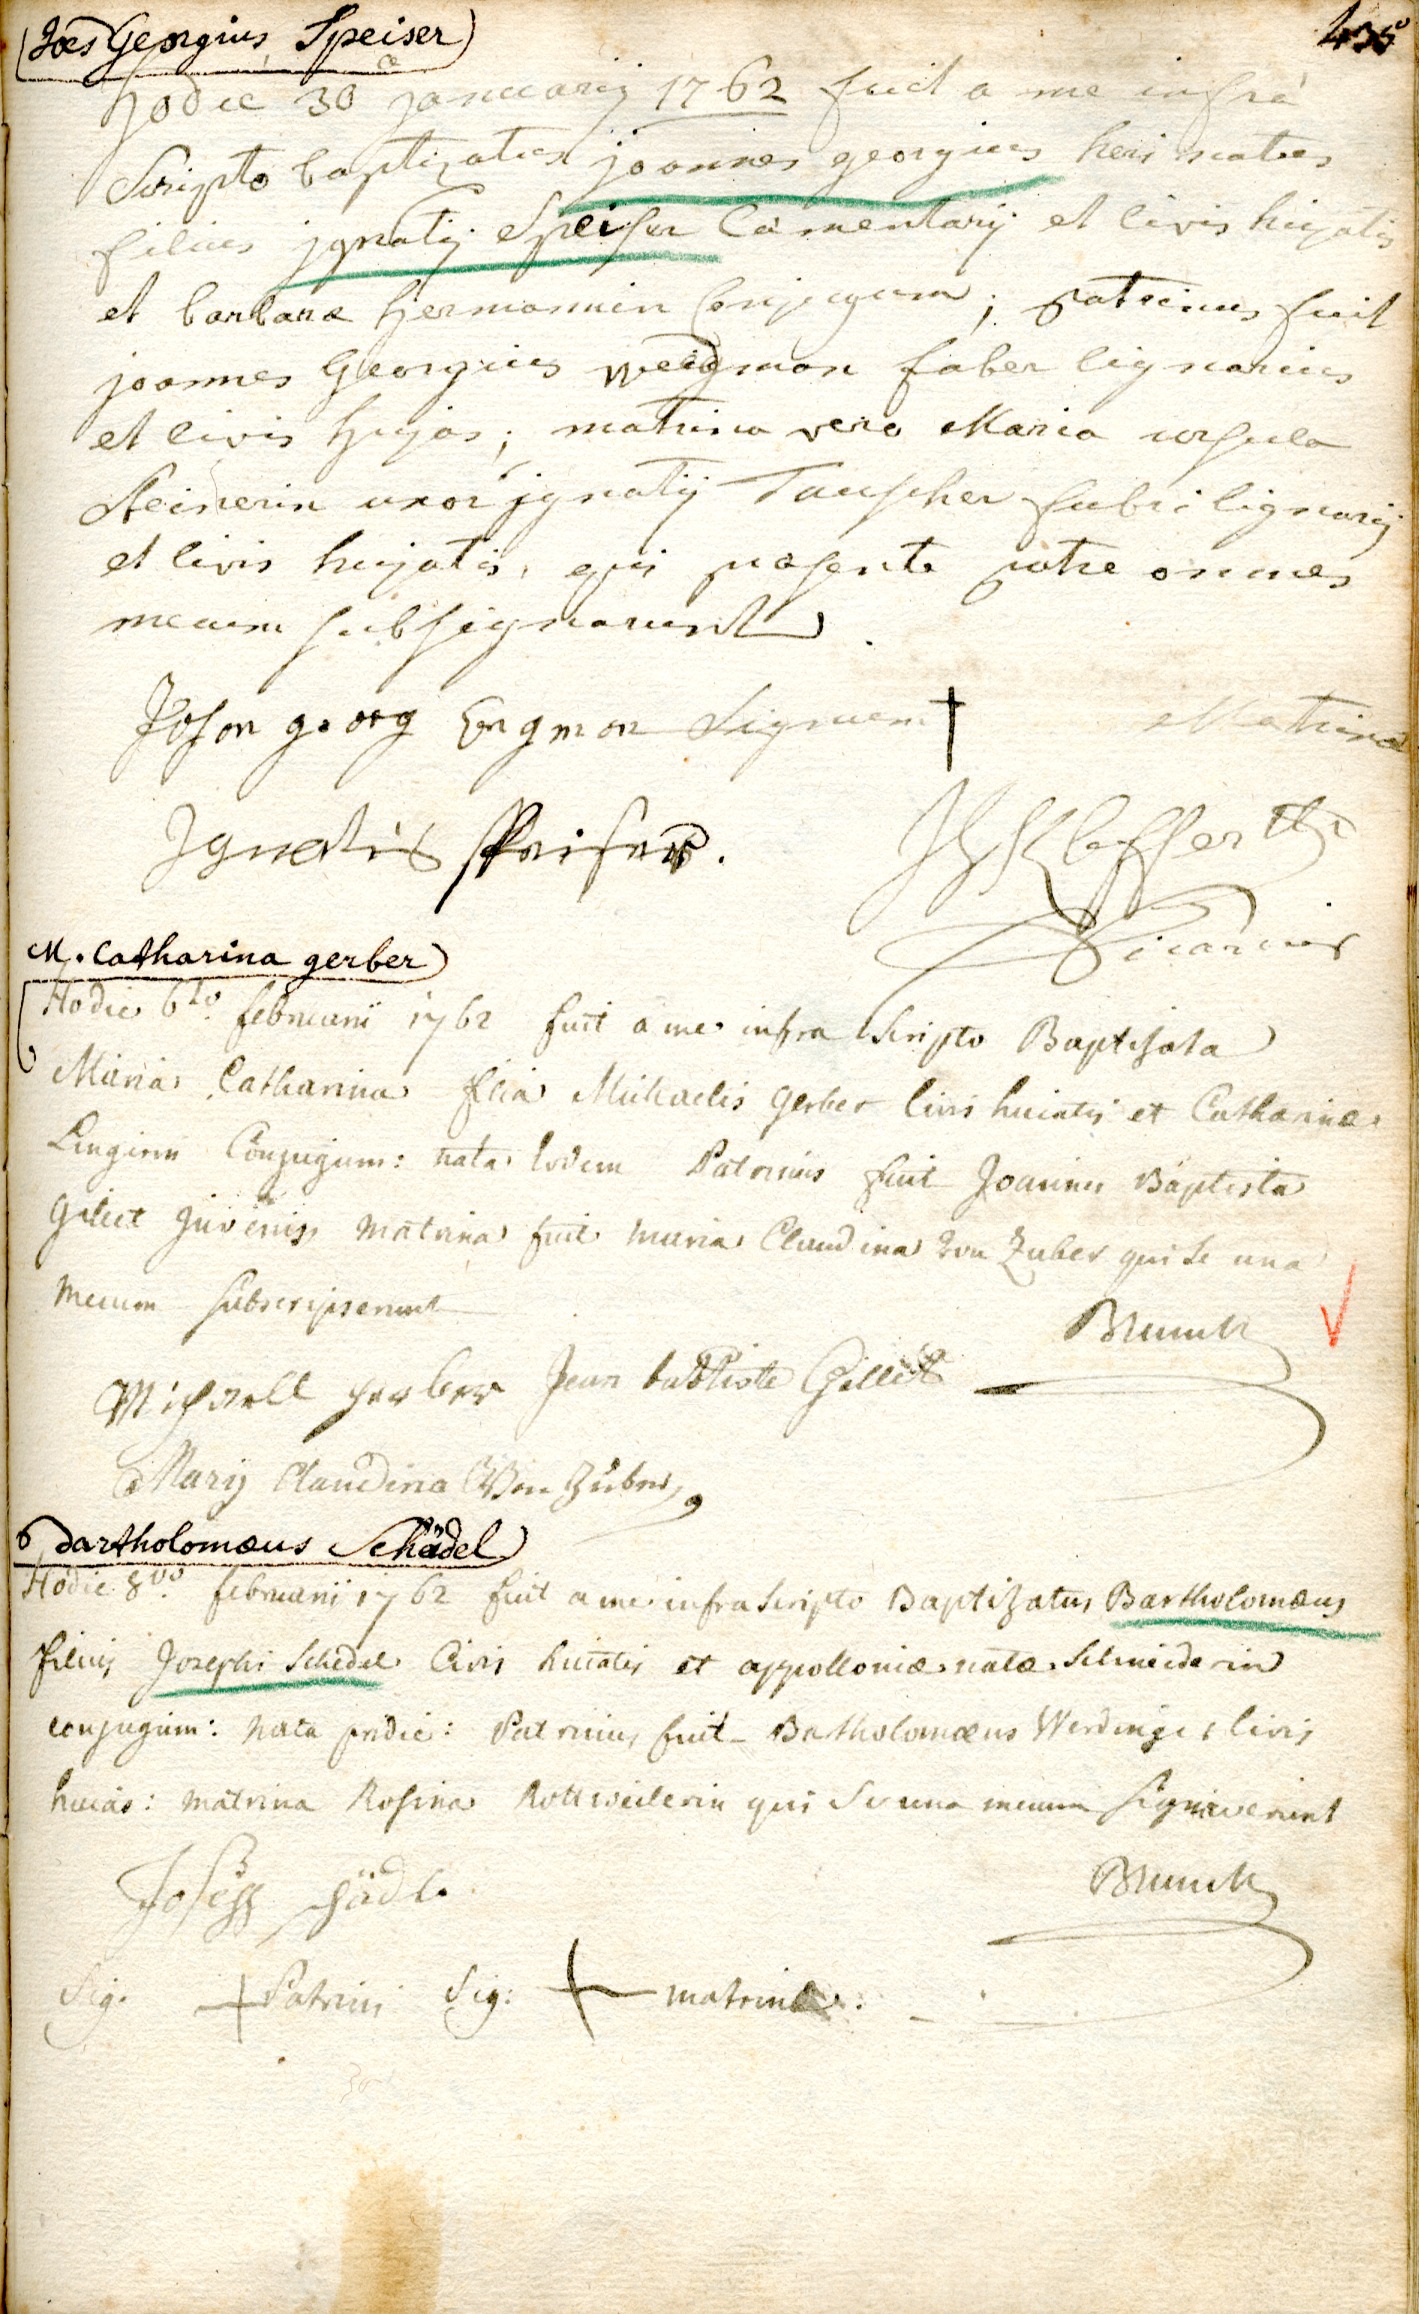 Joes Georgius Speiser
435
hodie 30 januarij 1762 fuit a me infra
Scripto baptizatus joannes georgius heri natus
filius jgnatij Speiser Cämentarij et civis hujatis
et barbaræ hermannin Conjugum; patrinus fuit
joannes Georgius Weegman faber lignarius
et civis hujas; matrina vero Maria ursula
Steinerin uxor jgnatij Tauscher fabri lignarij
et civis hujatis, qui præsente patre omnes
mecum subsignarunt.
Johan georg Engman Signum † Matrinæ
Ignatius Speiser.
Vicarius
M. Catharina gerber
Hodie 6to februarii 1762 fuit a me infra Scripto Baptisata
Maria Catharina filia Michaelis gerber Civis huiatis et Catharinæ
Lingerin Conjugum: nata Eodem Patrinus fuit Joannes Baptista
Gilliet juvenis, matrina fuit maria Claudina von Zuber qui se una
mecum subscripserunt
Brunck
Michaell gerber Jean baptiste Gilliet
Mary Claudina Von Züber
Bartholomæus Schädel
Hodie 8vo februarii 1762 fuit a me infra scripto Baptizatus Bartholomæus
filius Josephi Schedel Civis huiatis et appolloniæ natæ Schneiderin
conjugum: nata pridie: Patrinus fuit Bartholomæus Werdinger civis
huias: matrina Rosina Rottweilerin qui se una mecum signaverunt
Brunck
Joseph schädl
Sig. + Patrini Sig: + matrinæ: